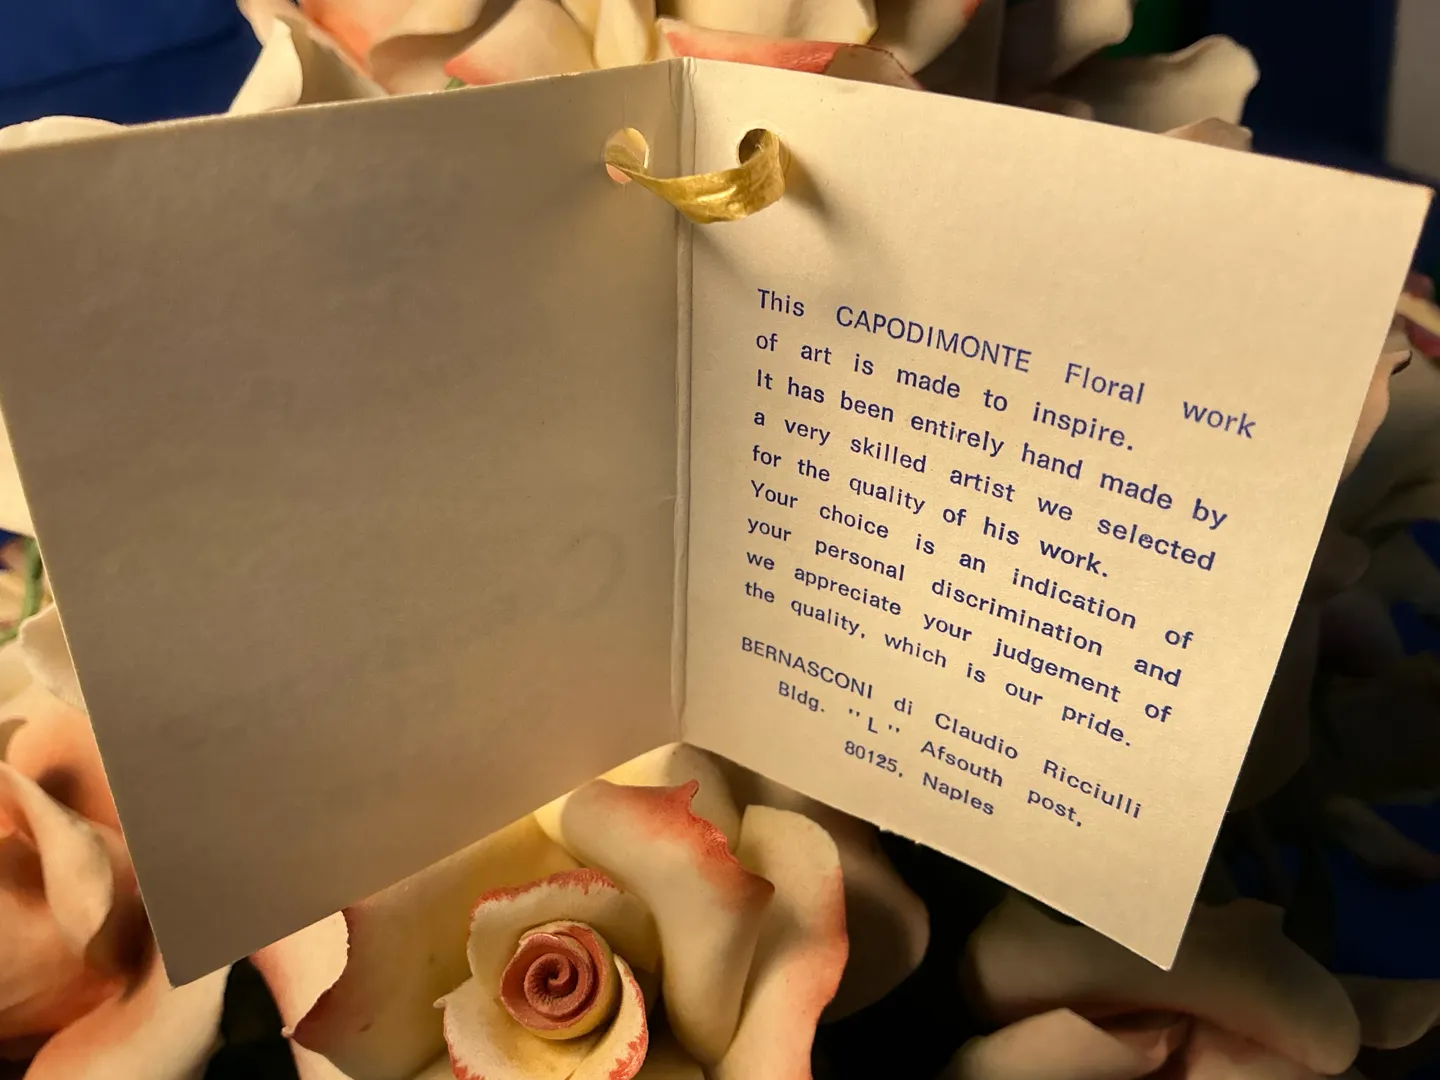 This CAPODIMONTE Floral work
of art is made to inspire.
It has been entirely hand made by
a very skilled artist we selected
for the quality of his work.
Your choice is an indication of
your personal discrimination and
we appreciate your judgement of
the quality, which is our pride.
BERNASCONI di Claudio Ricciulli
Bldg. "L" Afsouth post,
80125, Naples